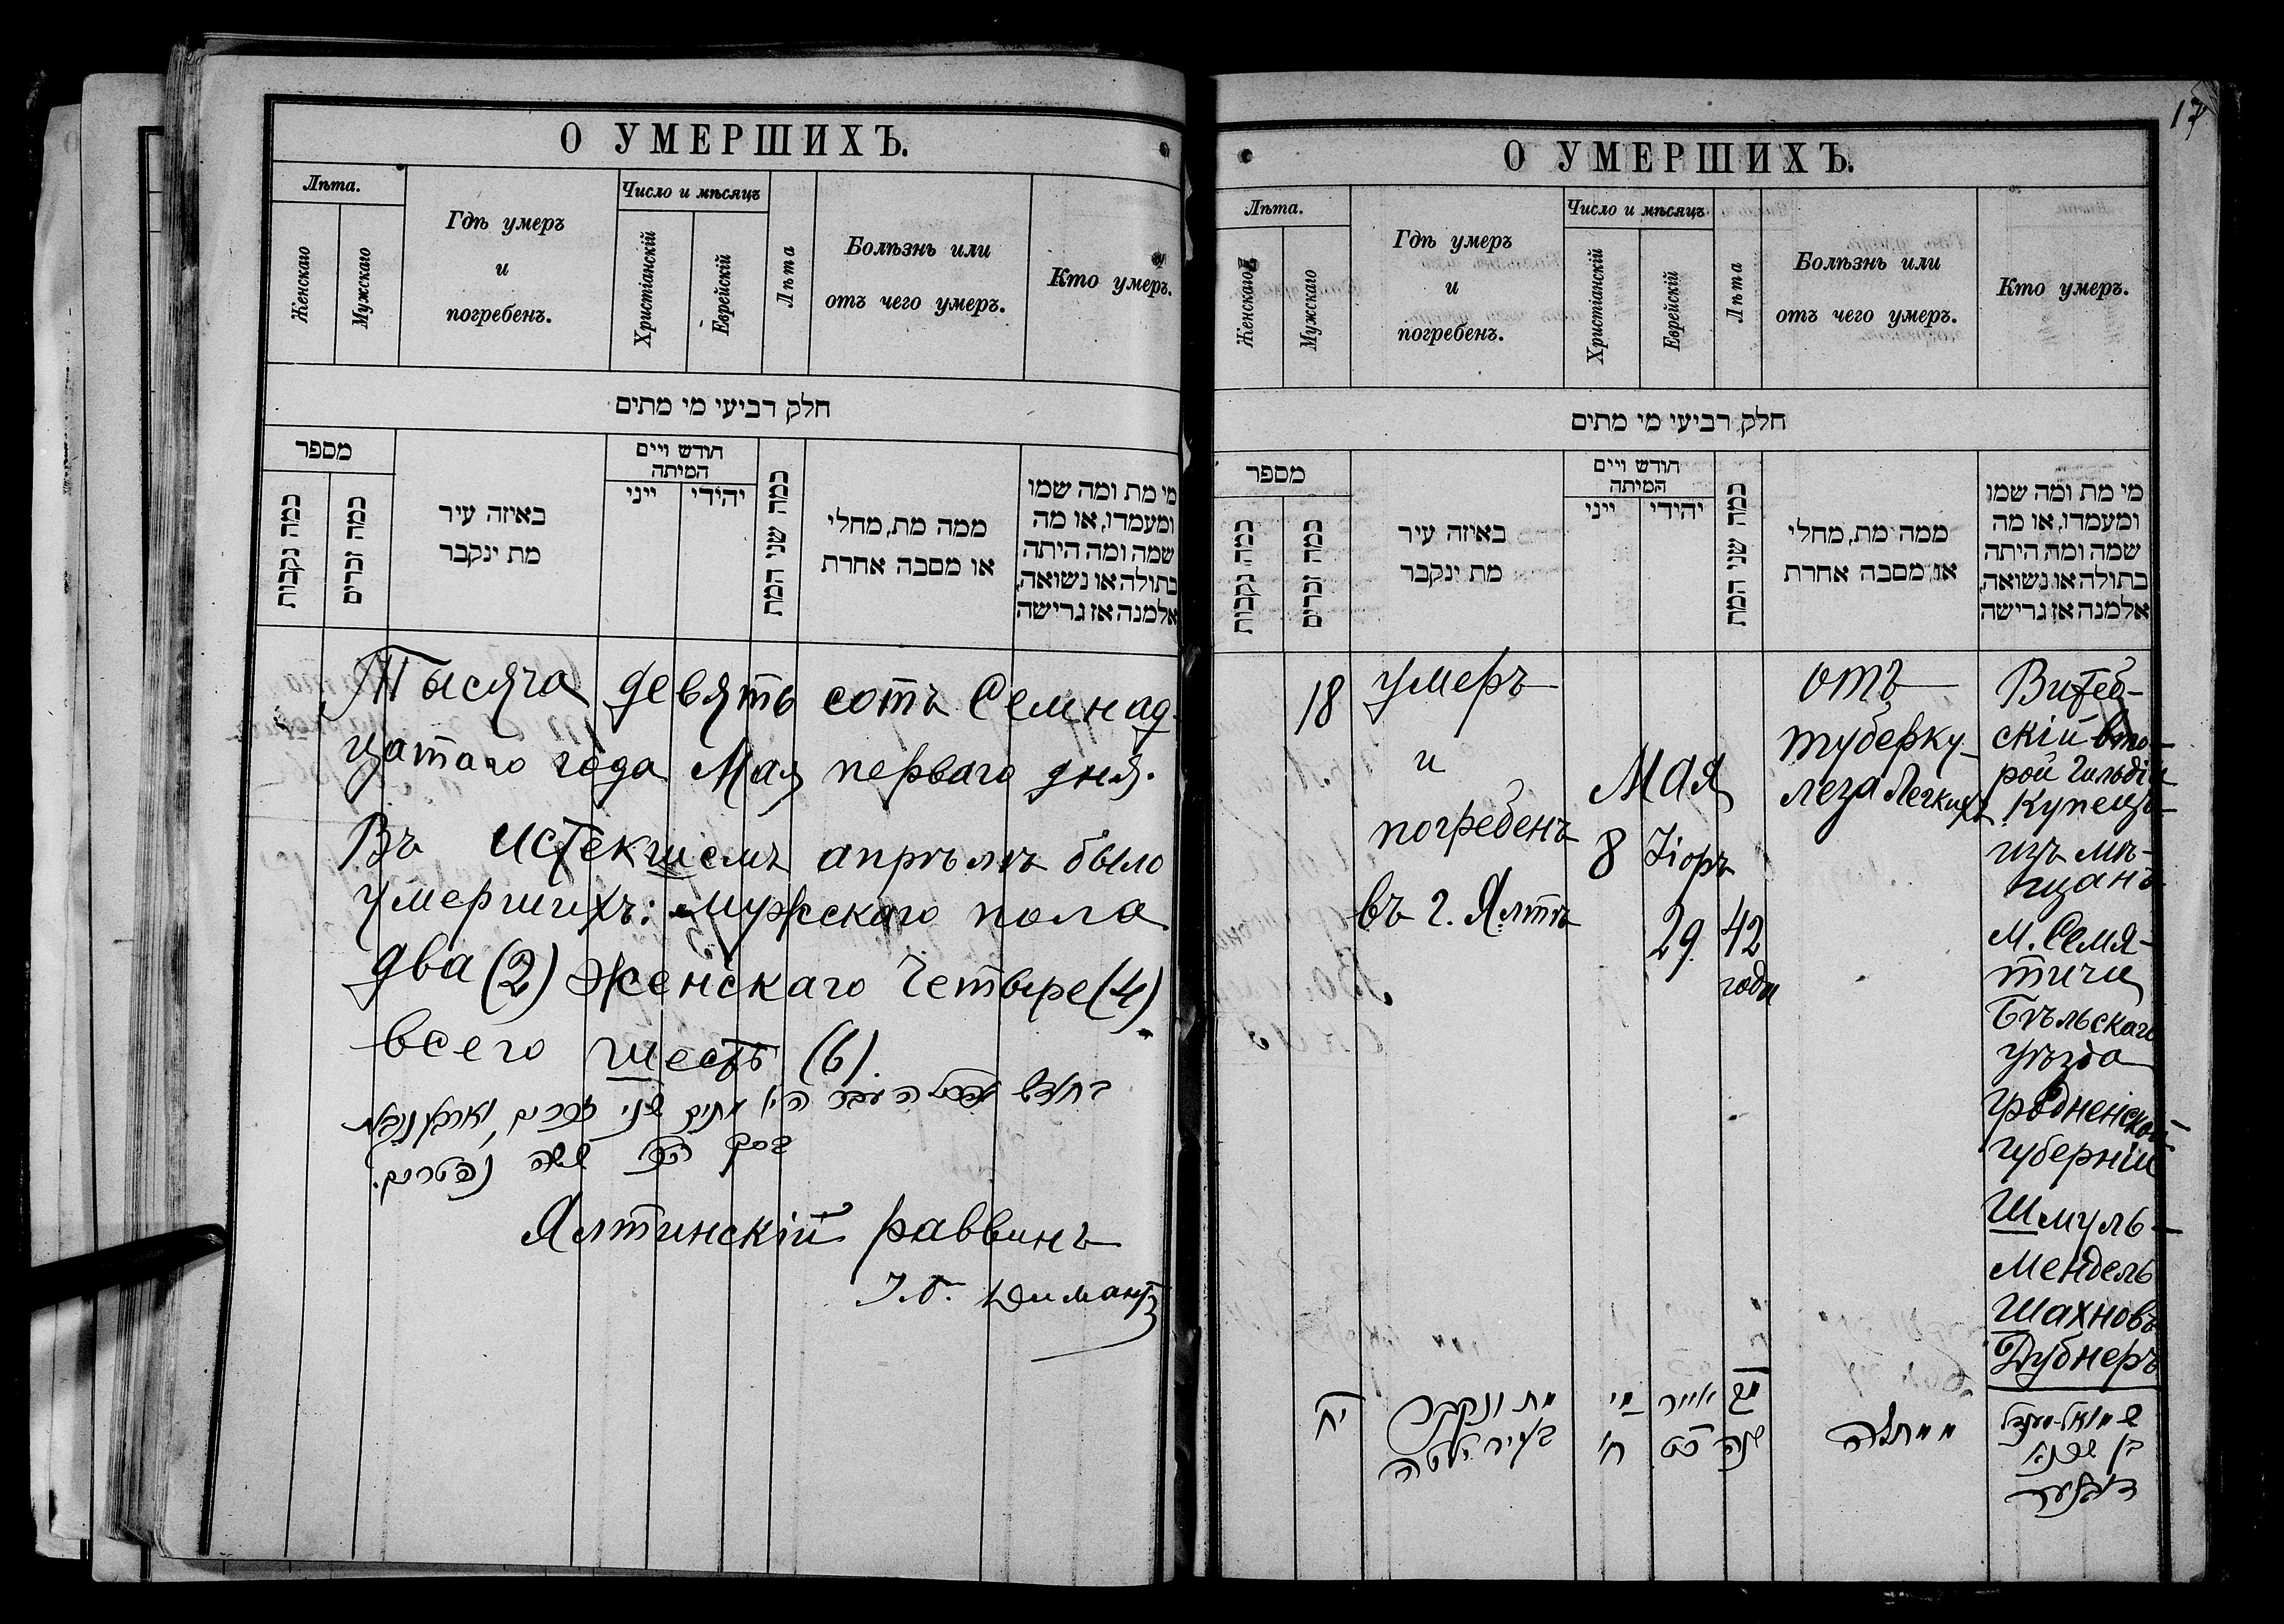 О УМЕРШИХЪ.
Лѣта.
Женскаго
Мужскаго
Гдѣ умеръ
и
погребенъ.
Число и мѣсяцъ
Христіанскій
Еврейскій
Лѣта
Болѣзнь или
отъ чего умеръ.
Кто умеръ.
חלק רביעי מי מתים
מספר
כמה נקבות
כמה זכרים
באיזה עיר
מת ינקבר
חודש ויים
המיתה
ייני
יהודי
כמה שני המת
ממה מת, מחלי
או מסבה אחרת
מי מת ומה שמו
ומעמדו, או מה
שמה ומה היתה
בתולה או נשואה,
אלמנה אז גרישה
Тысяча девять сотъ Семнад-
цатаго года Мая перваго дня.
Въ истекшемъ апрѣлѣ было
умершихъ: мужскаго пола
два (2) женскаго Четыре (4)
всего шесть (6).
בחודש אפריל העבר היו מתים שני זכרים, וארבע נקבות
בסך הכל ששה נפטרים.
Ялтинскій раввинъ
17
О УМЕРШИХЪ.
Лѣта.
Женскаго
Мужскаго
Гдѣ умеръ
и
погребенъ.
Число и мѣсяцъ
Христіанскій
Еврейскій
Лѣта
Болѣзнь или
отъ чего умеръ.
Кто умеръ.
חלק רביעי מי מתים
מספר
כמה נקבות
כמה זכרים
באיזה עיר
מת ינקבר
חודש ויים
המיתה
ייני
יהודי
כמה שני המת
ממה מת, מחלי
או מסבה אחרת
מי מת ומה שמו
ומעמדו, או מה
שמה ומה היתה
בתולה או נשואה,
אלמנה אז גרישה
18
умеръ
и
погребенъ
въ г. Ялтѣ
Мая
8
Іоръ
29
42
года
отъ
туберку-
леза Легкихъ
Витеб-
скій вто-
рой Гильдіи
Купецъ
изъ мѣ-
щанъ
м. Семя-
тичи
Бѣльскаго
уѣзда
Гродненской
губерніи
Шмуль-
Мендель
Шахновъ
Дубнеръ
יח
מת ונקבר
בעיר יאלטה
מיי
ח׳
אייר
כט
מב
שנה
שמואל-מענדל
בן שכנא
דובנער